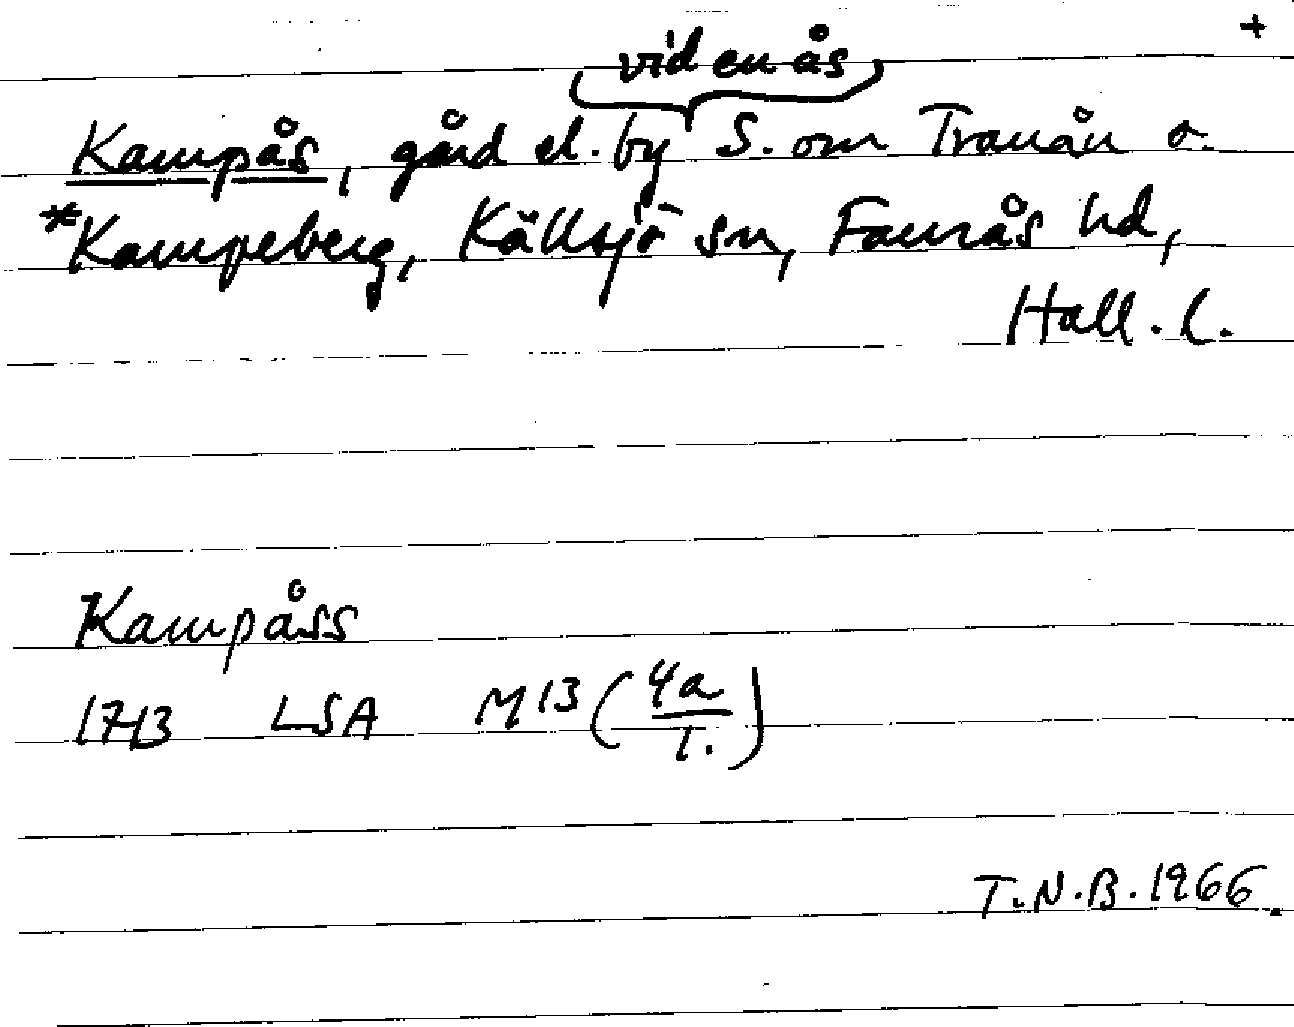 +
vid en ås
Kampås, gård el. by S. om Tranån o.
*Kampeberg, Källsjö sn, Faurås hd,
Hall. l.
Kampåss
1713 LSA M13 (4a/1.)
T.N.B. 1966.